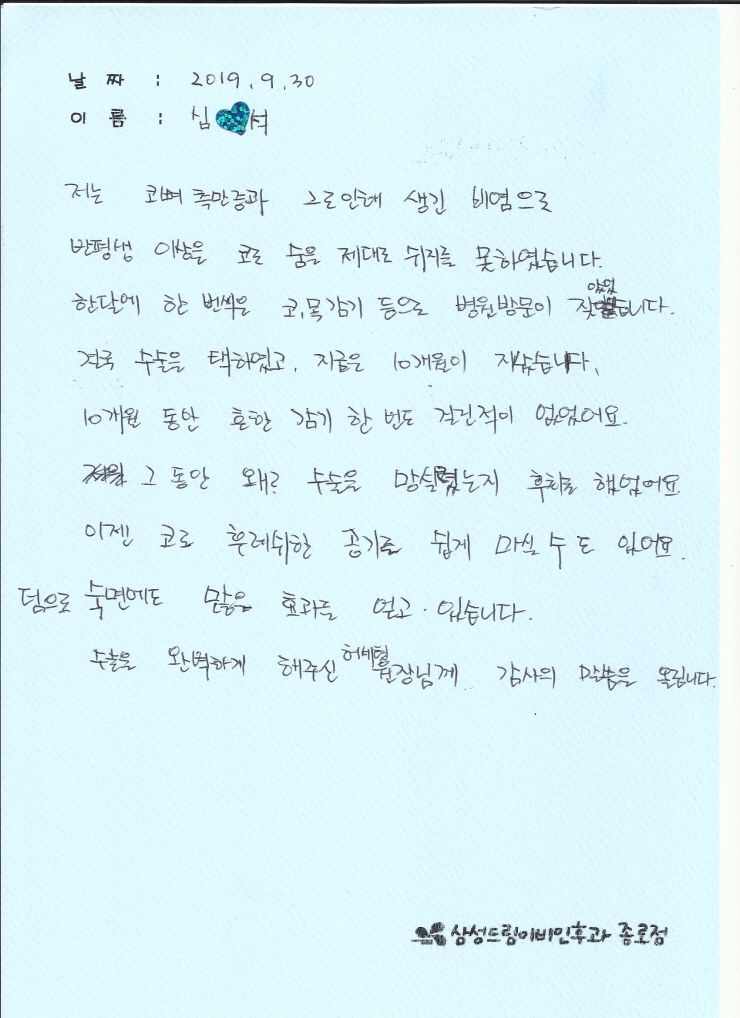 날 짜 : 2019. 9. 30
이 름 : 심 석
저는 코뼈 측만증과 그로인해 생긴 비염으로
반평생 이상을 코로 숨을 제대로 쉬지를 못하였습니다.
한달에 한 번씩은 코, 목감기 등으로 병원방문이 잦았었습니다.
결국 수술을 택하였고, 지금은 10개월이 지났습니다.
10개월 동안 흔한 감기 한 번도 걸린적이 없었어요.
그 동안 왜? 수술을 망설였는지 후회를 했었어요
이젠 코로 후레쉬한 공기를 쉽게 마실 수 도 있어요.
덤으로 숙면에도 많은 효과를 얻고 있습니다.
수술을 완벽하게 해주신 허세형 원장님께 감사의 말씀을 올립니다.
삼성드림이비인후과 종로점